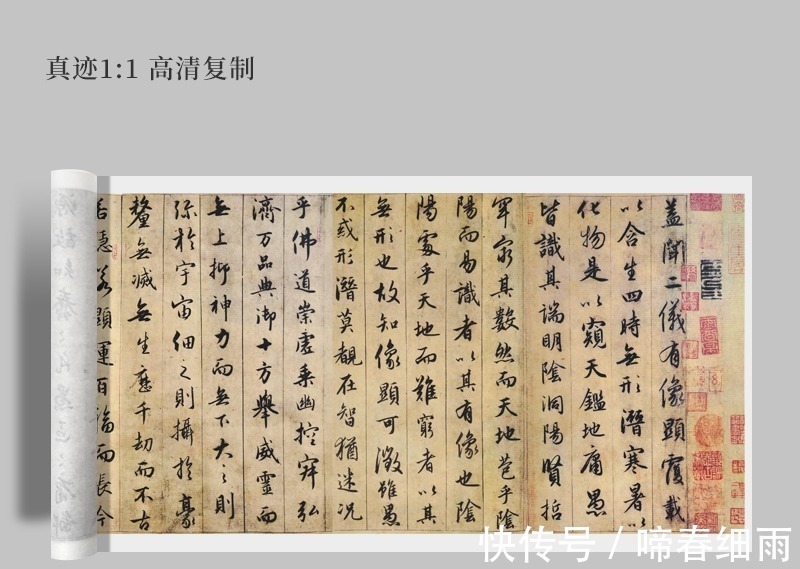 真迹1:1 高清复制
蓋聞二儀有像顯覆載
以含生四時無形潛寒暑以
化物是以窺天鑑地庸愚
皆識其端明陰洞陽賢哲
罕窮其數然而天地苞乎陰
陽而易識者以其有像也陰
陽處乎天地而難窮者以其
無形也故知像顯可徵雖愚
不或形潛莫覩在智猶迷况
乎佛道崇虛乘幽控寂弘
濟万品典御十方舉威靈而
無上抑神力而無下大之則
弥於宇宙細之則攝於毫
釐無滅無生歷千劫而不古
若隱若顯運百福而長今
快传号 / 啼春细雨